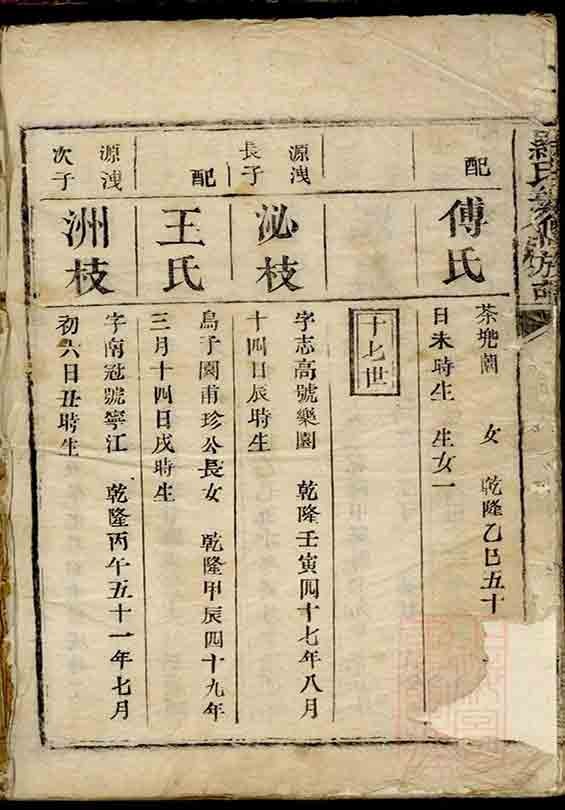 配
傅氏
茶兠園 女 乾隆乙巳五十
日未時生 生女一
十七世
源洩
長子
泌枝
字志高號樂園 乾隆壬寅四十七年八月
十四日辰時生
配
王氏
鳥子園甫珍公長女 乾隆甲辰四十九年
三月十四日戌時生
源洩
次子
洲枝
字南冠號寧江 乾隆丙午五十一年七月
初六日丑時生